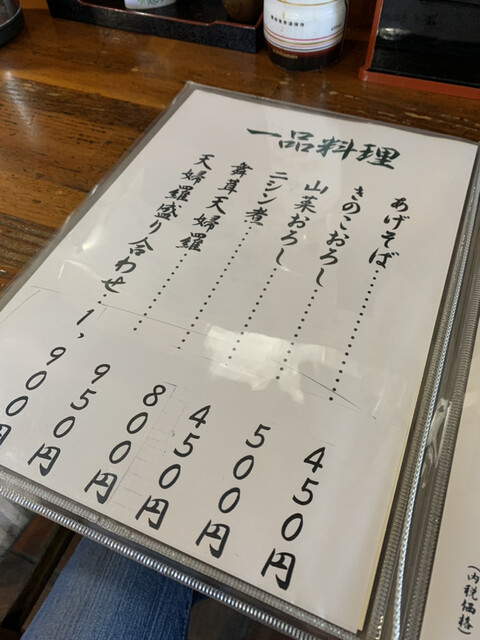 一品料理
あげそば……………450円
きのこおろし……………500円
山菜おろし……………450円
ニシン煮……………800円
舞茸天婦羅……………950円
天婦羅盛り合わせ…1,900円
(内税価格)